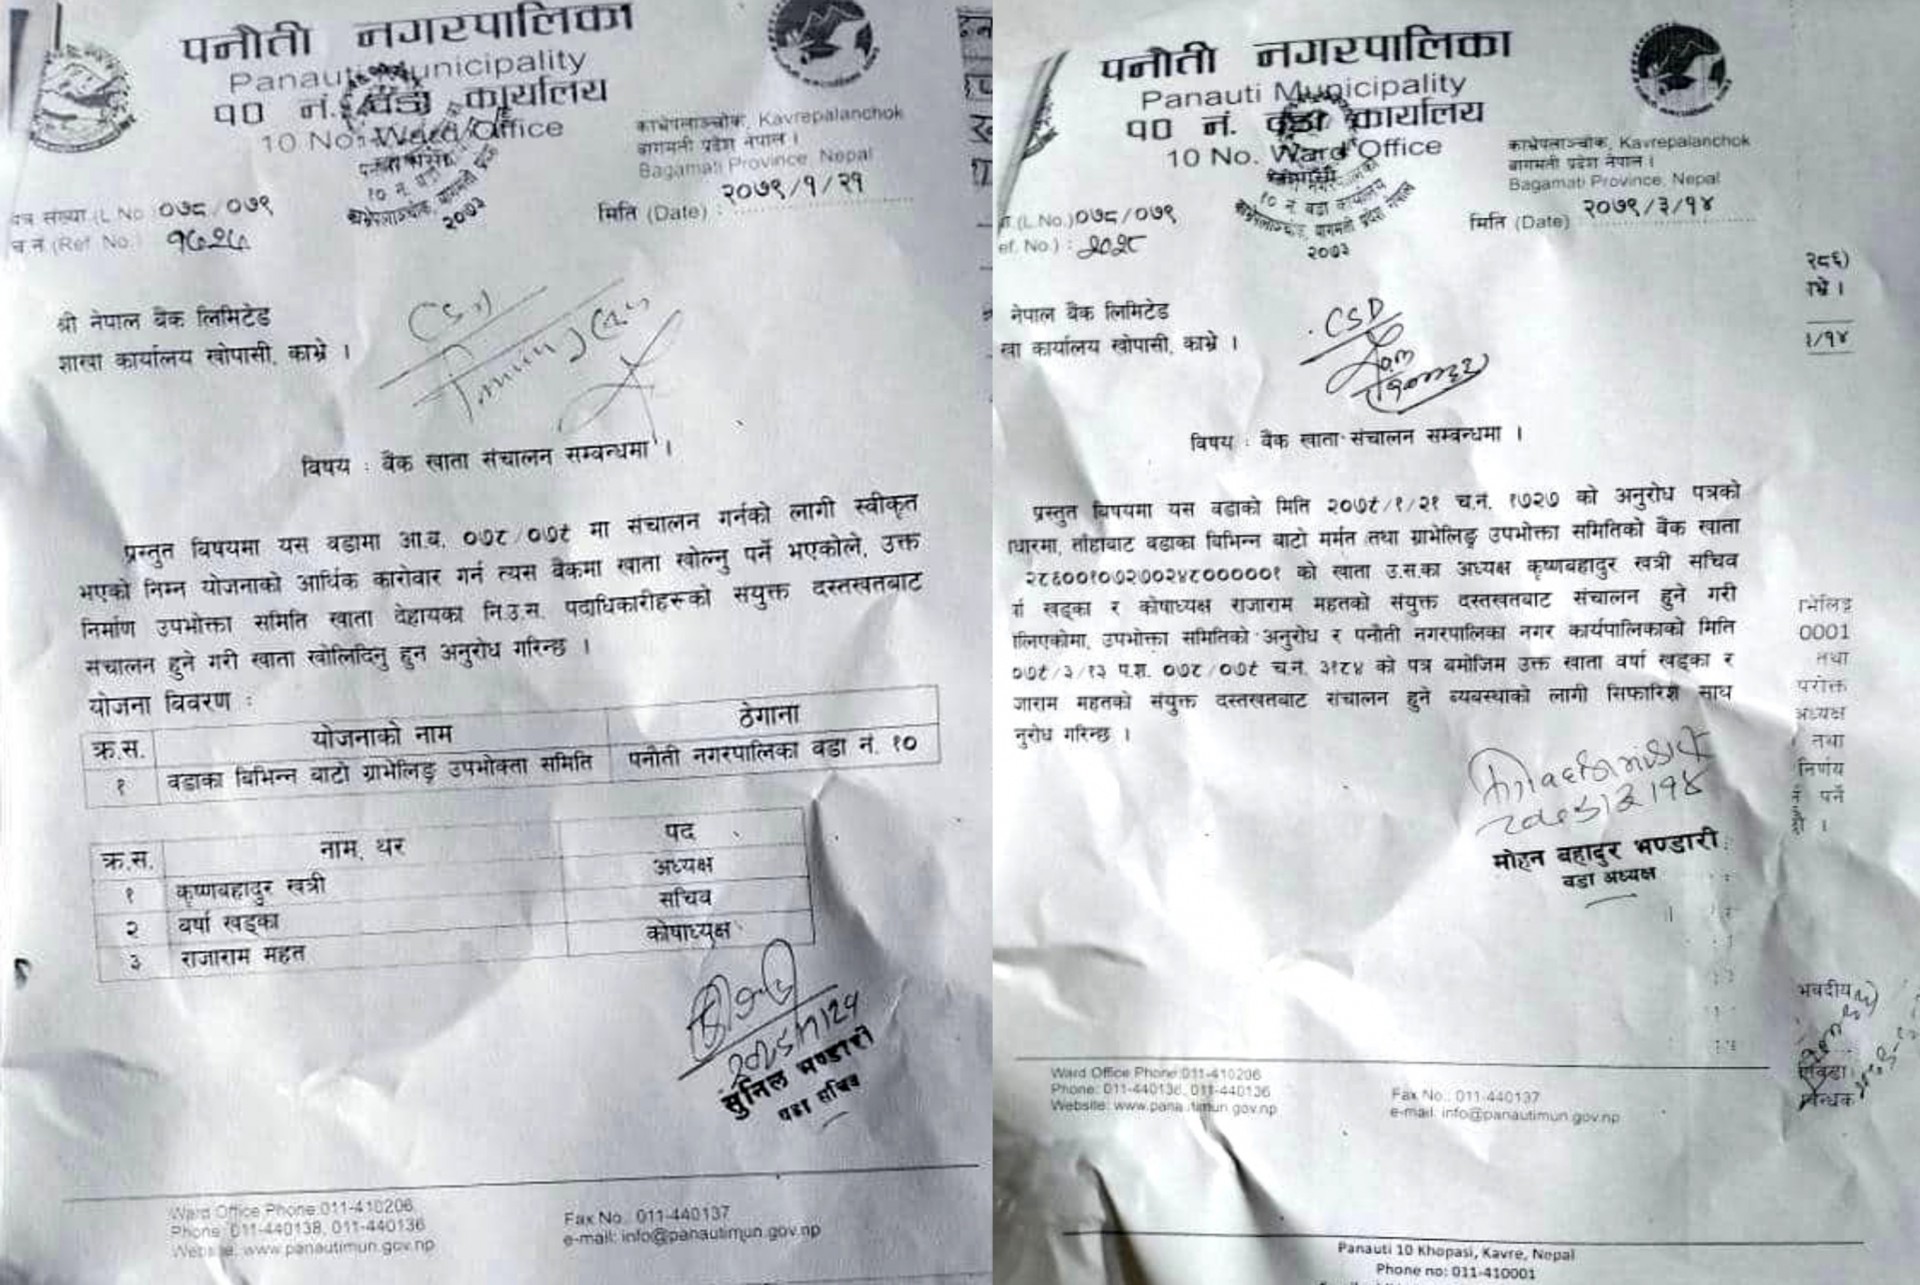 पनौती नगरपालिका
Panauti Municipality
१० नं. वडा कार्यालय
10 No. Ward Office
काभ्रेपलाञ्चोक, Kavrepalanchok
बागमती प्रदेश नेपाल ।
Bagamati Province, Nepal
पत्र संख्या (L No.) ०७८/०७९
मिति (Date) : २०७९/१/२१
च.नं (Ref No.)
१० नं. वडा
काभ्रेपलाञ्चोक, बागमती प्रदेश
२०७३
श्री नेपाल बैंक लिमिटेड
शाखा कार्यालय खोपासी, काभ्रे ।
विषय : बैंक खाता संचालन सम्बन्धमा ।
प्रस्तुत विषयमा यस वडामा आ.व. ०७८/०७९ मा संचालन गर्नको लागी स्वीकृत
भएको निम्न योजनाको आर्थिक कारोवार गर्न त्यस बैंकमा खाता खोल्नु पर्ने भएकोले, उक्त
निर्माण उपभोक्ता समिति खाता देहायका नि.उ.स. पदाधिकारीहरूको संयुक्त दस्तखतबाट
संचालन हुने गरी खाता खोलिदिनु हुन अनुरोध गरिन्छ ।
योजना विवरण :
क्र.स. योजनाको नाम ठेगाना
१ वडाका विभिन्न बाटो ग्राभेलिङ्ग उपभोक्ता समिति पनौती नगरपालिका वडा नं. १०
क्र.स. नाम, थर पद
१ कृष्णबहादुर खत्री अध्यक्ष
२ वर्षा खड्का सचिव
३ राजाराम महत कोषाध्यक्ष
सुनिल भण्डारी
वडा सचिव
Ward Office Phone:011-410206
Phone: 011-440138, 011-440136
Website: www.panautimun.gov.np
Fax No.. 011-440137
e-mail: info@panautimun.gov.np
पनौती नगरपालिका
Panauti Municipality
१० नं. वडा कार्यालय
10 No. Ward Office
काभ्रेपलाञ्चोक, Kavrepalanchok
बागमती प्रदेश नेपाल ।
Bagamati Province, Nepal
(L.No.) ०७८/०७९
मिति (Date) : २०७९/३/१४
ef. No.) : २०२८
१० नं. वडा कार्यालय
काभ्रेपलाञ्चोक, बागमती प्रदेश नेपाल
२०७३
नेपाल बैंक लिमिटेड
खा कार्यालय खोपासी, काभ्रे ।
CSD
विषय : बैंक खाता संचालन सम्बन्धमा ।
प्रस्तुत विषयमा यस वडाको मिति २०७९/१/२१ च.नं. १७२७ को अनुरोध पत्रको
धारमा, ताँहाबाट वडाका विभिन्न बाटो मर्मत तथा ग्राभेलिङ्ग उपभोक्ता समितिको बैंक खाता
२८६००१०७२७०२४८०००००१ को खाता उ.स.का अध्यक्ष कृष्णबहादुर खत्री सचिव
र्षा खड्का र कोषाध्यक्ष राजाराम महतको संयुक्त दस्तखतबाट संचालन हुने गरी
लिएकोमा, उपभोक्ता समितिको अनुरोध र पनौती नगरपालिका नगर कार्यपालिकाको मिति
०७९/३/१३ प.श. ०७८/०७९ च.नं. ३१८४ को पत्र बमोजिम उक्त खाता वर्षा खड्का र
जाराम महतको संयुक्त दस्तखतबाट संचालन हुने ब्यवस्थाको लागी सिफारिश साथ
नुरोध गरिन्छ ।
मोहन बहादुर भण्डारी
वडा अध्यक्ष
Ward Office Phone:011-410206
Phone: 011-440136, 011-440136
Fax No.. 011-440137
e-mail. info@panautimun.gov.np
२८६)
भ्रे ।
३/१४
भेलिङ्ग
0001
तथा
परोक्त
अध्यक्ष
तथा
निर्णय
पर्ने
भवदीय
Panauti 10 Khopasi, Kavre, Nepal
Phone no: 011-410001